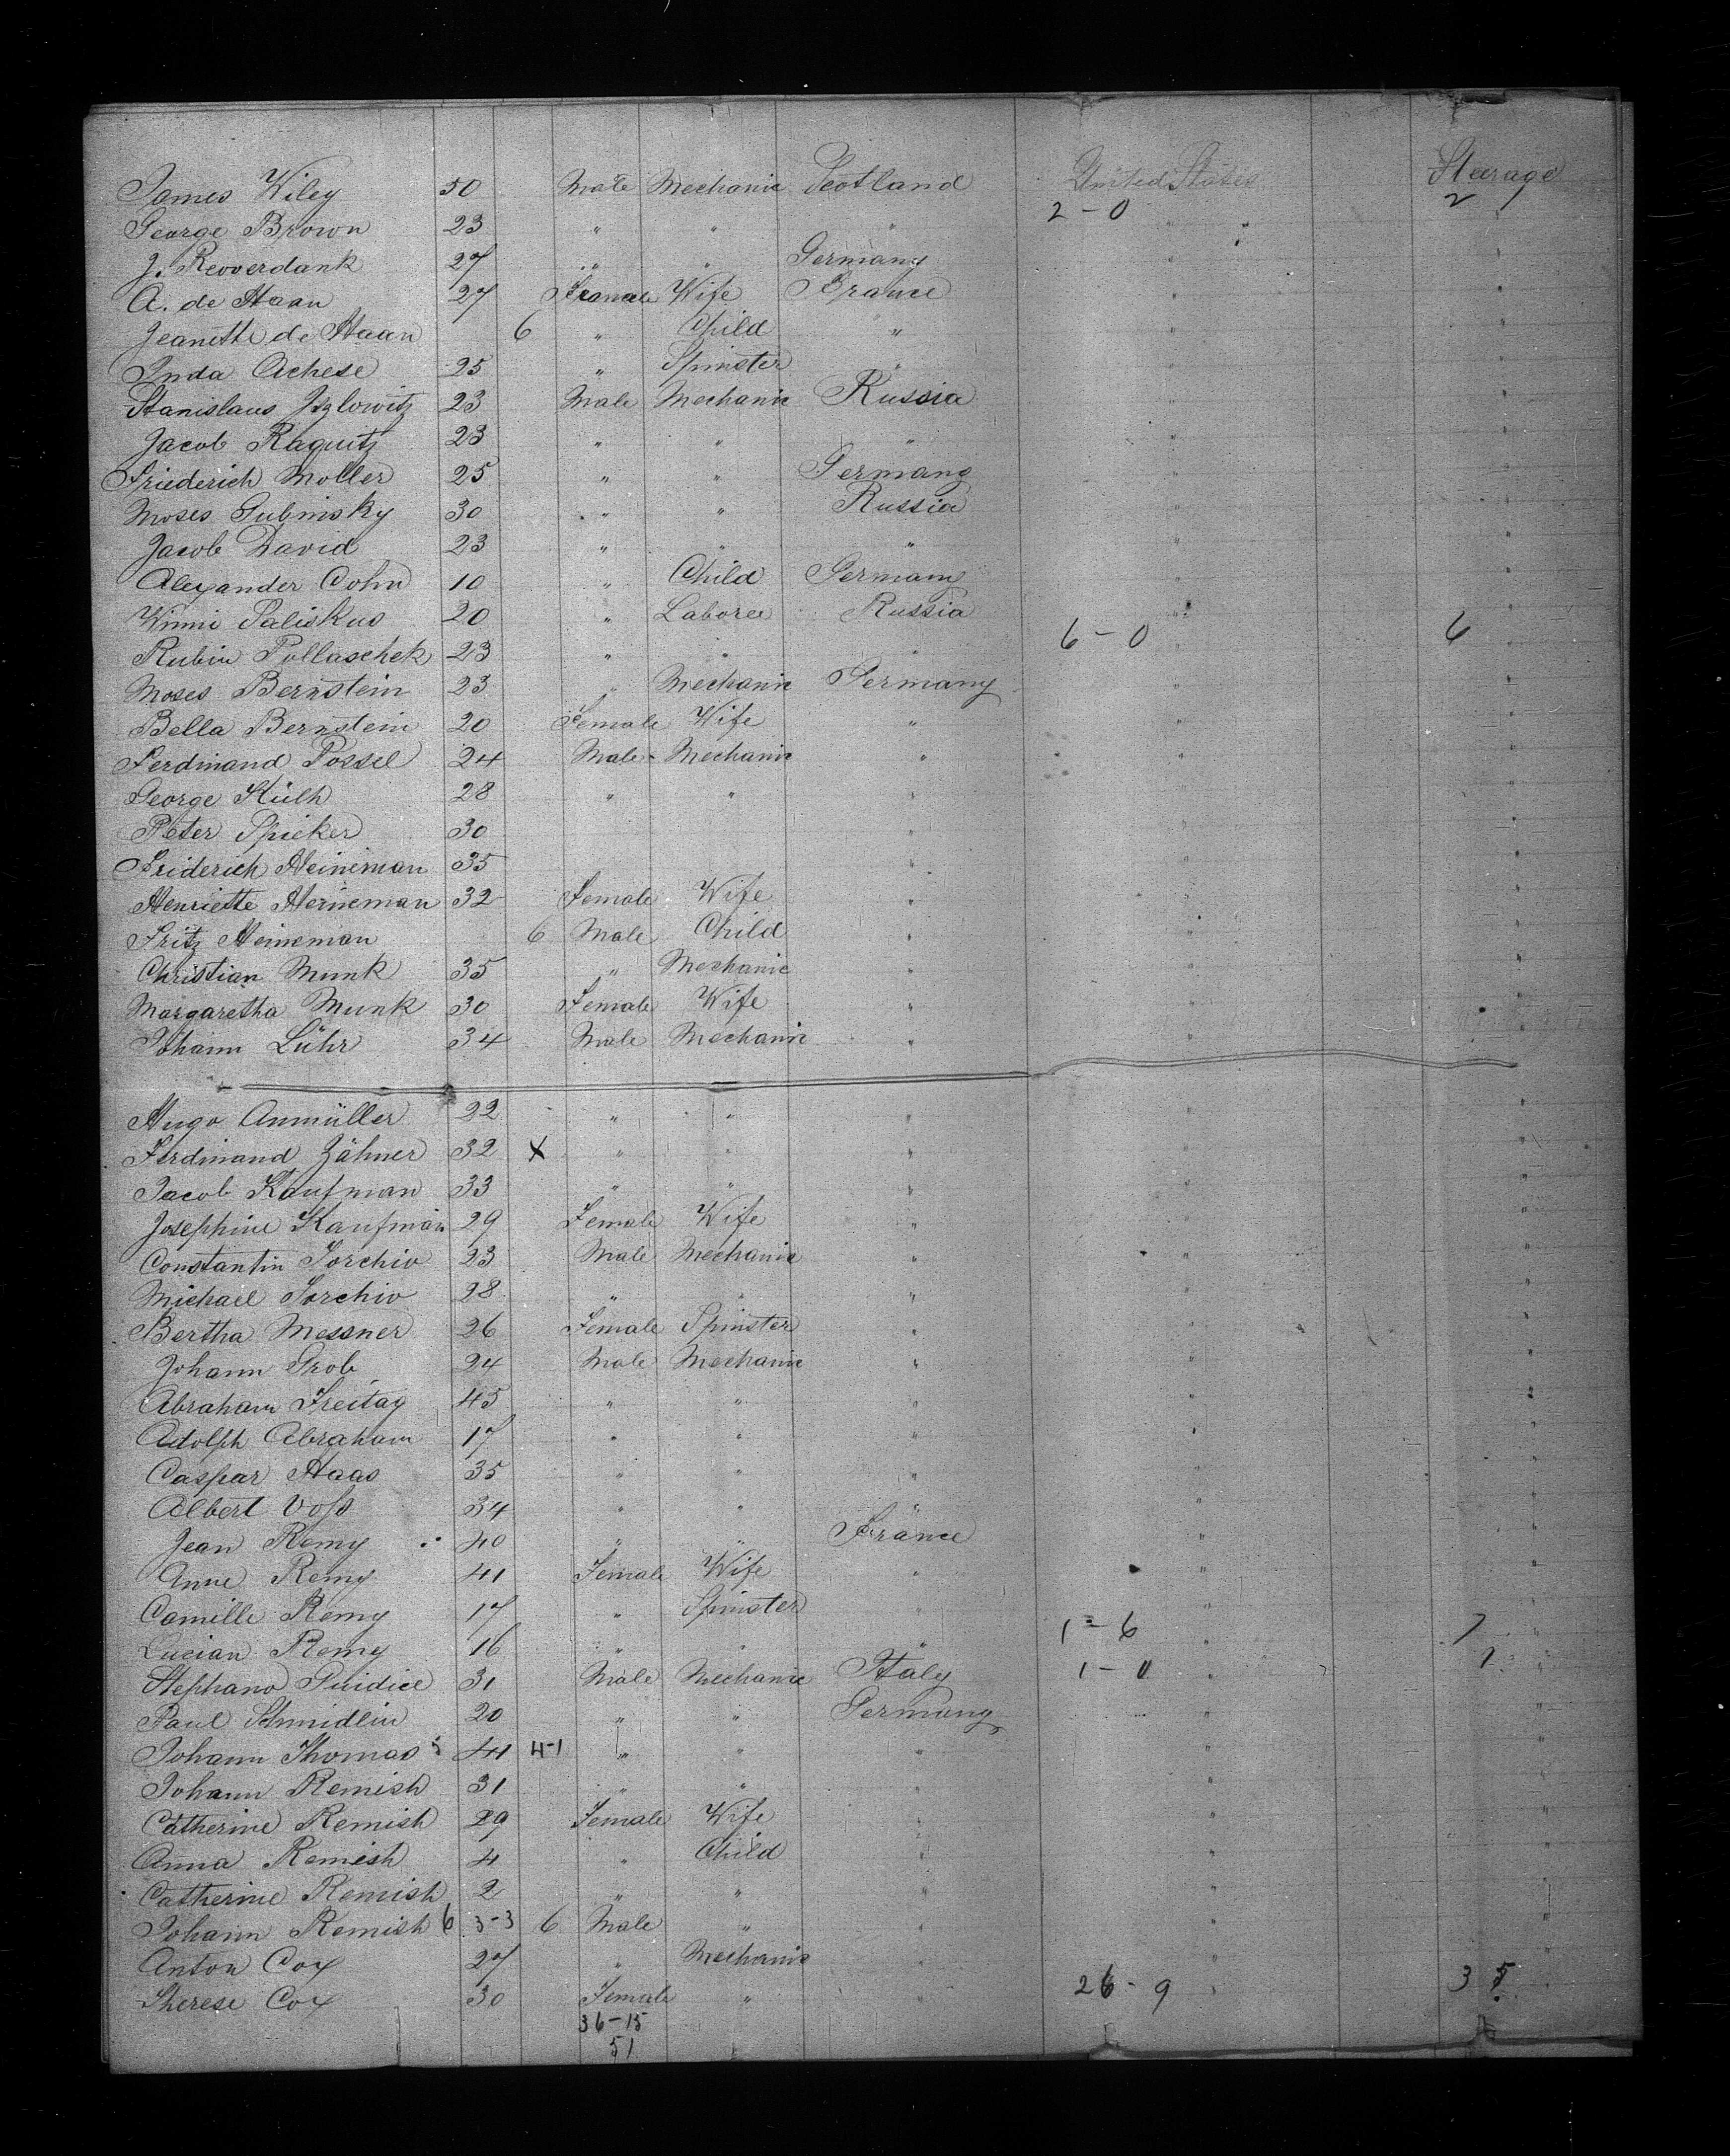 James Wiley 50 Male Mechanic Scotland United States Stearage
2 - 0 2
George Brown 23 " " " " "
J. Reoverdank 27 " " Germany " "
A. de Haan 27 Female Wife France " "
Jeanette de Haan 6 " Child " " "
Inda Achese 25 " Spinster " " "
Stanislaus 23 Male Mechanic Russia " "
Jacob Raguitz 23 " " " " "
Friederich Moller 25 " " Germany " "
Moses Gubinsky 30 " " Russia " "
Jacob David 23 " " " " "
Alexander Cohn 10 " Child Germany " "
Winni Paliskus 20 " Laborer Russia " "
6 - 0 6
Rubin Pollaschek 23 " " " " "
Moses Bernstein 23 " Mechanic Germany " "
Bella Bernstein 20 Female Wife " " "
Ferdinand Possel 24 Male Mechanic " " "
George Küth 28 " " " " "
Peter Spieker 30 " " "
Friderich Heineman 35 " " "
Henriette Heineman 32 Female Wife " " "
Fritz Heineman 6 Male Child " " "
Christian Munk 35 " Mechanic " " "
Margaretha Munk 30 Female Wife " " "
Johann Lühr 34 Male Mechanic " " "
Hugo Anmüller 22 " " " " "
Ferdinand Zähner 32 X " " " " "
Jacob Kaufman 33 " " " " "
Josephine Kaufman 29 Female Wife " " "
Constantin Torchio 23 Male Mechanic " " "
Michael Torchio 28 " " " " "
Bertha Messner 26 Female Spinster " " "
Johann Grob 24 Male Mechanic " " "
Abraham Freitag 45 " " " " "
Adolph Abraham 17 " " " " "
Caspar Haas 35 " " " " "
Albert Voß 34 " " " " "
Jean Remy 40 " " France " "
Anne Remy 41 Female Wife " " "
Camille Remy 17 " Spinster " " "
1 - 6 7
Lucian Remy 16 " " " " "
Stephano Guidice 31 Male Mechanic Italy 1 - 0 " 1 "
Paul Schmidlin 20 " " Germany " "
Johann Thomas 41 4-1 " " " " "
Johann Remish 31 " " " " "
Catherine Remish 29 Female Wife " " "
Anna Remish 4 " Child " " "
Catherine Remish 2 " " " " "
Johann Remish 6 3-3 6 Male " " " "
Anton Cox 27 " Mechanic " " "
Therese Cox 30 Female " " 26 - 9 " 35
36-15
51 "